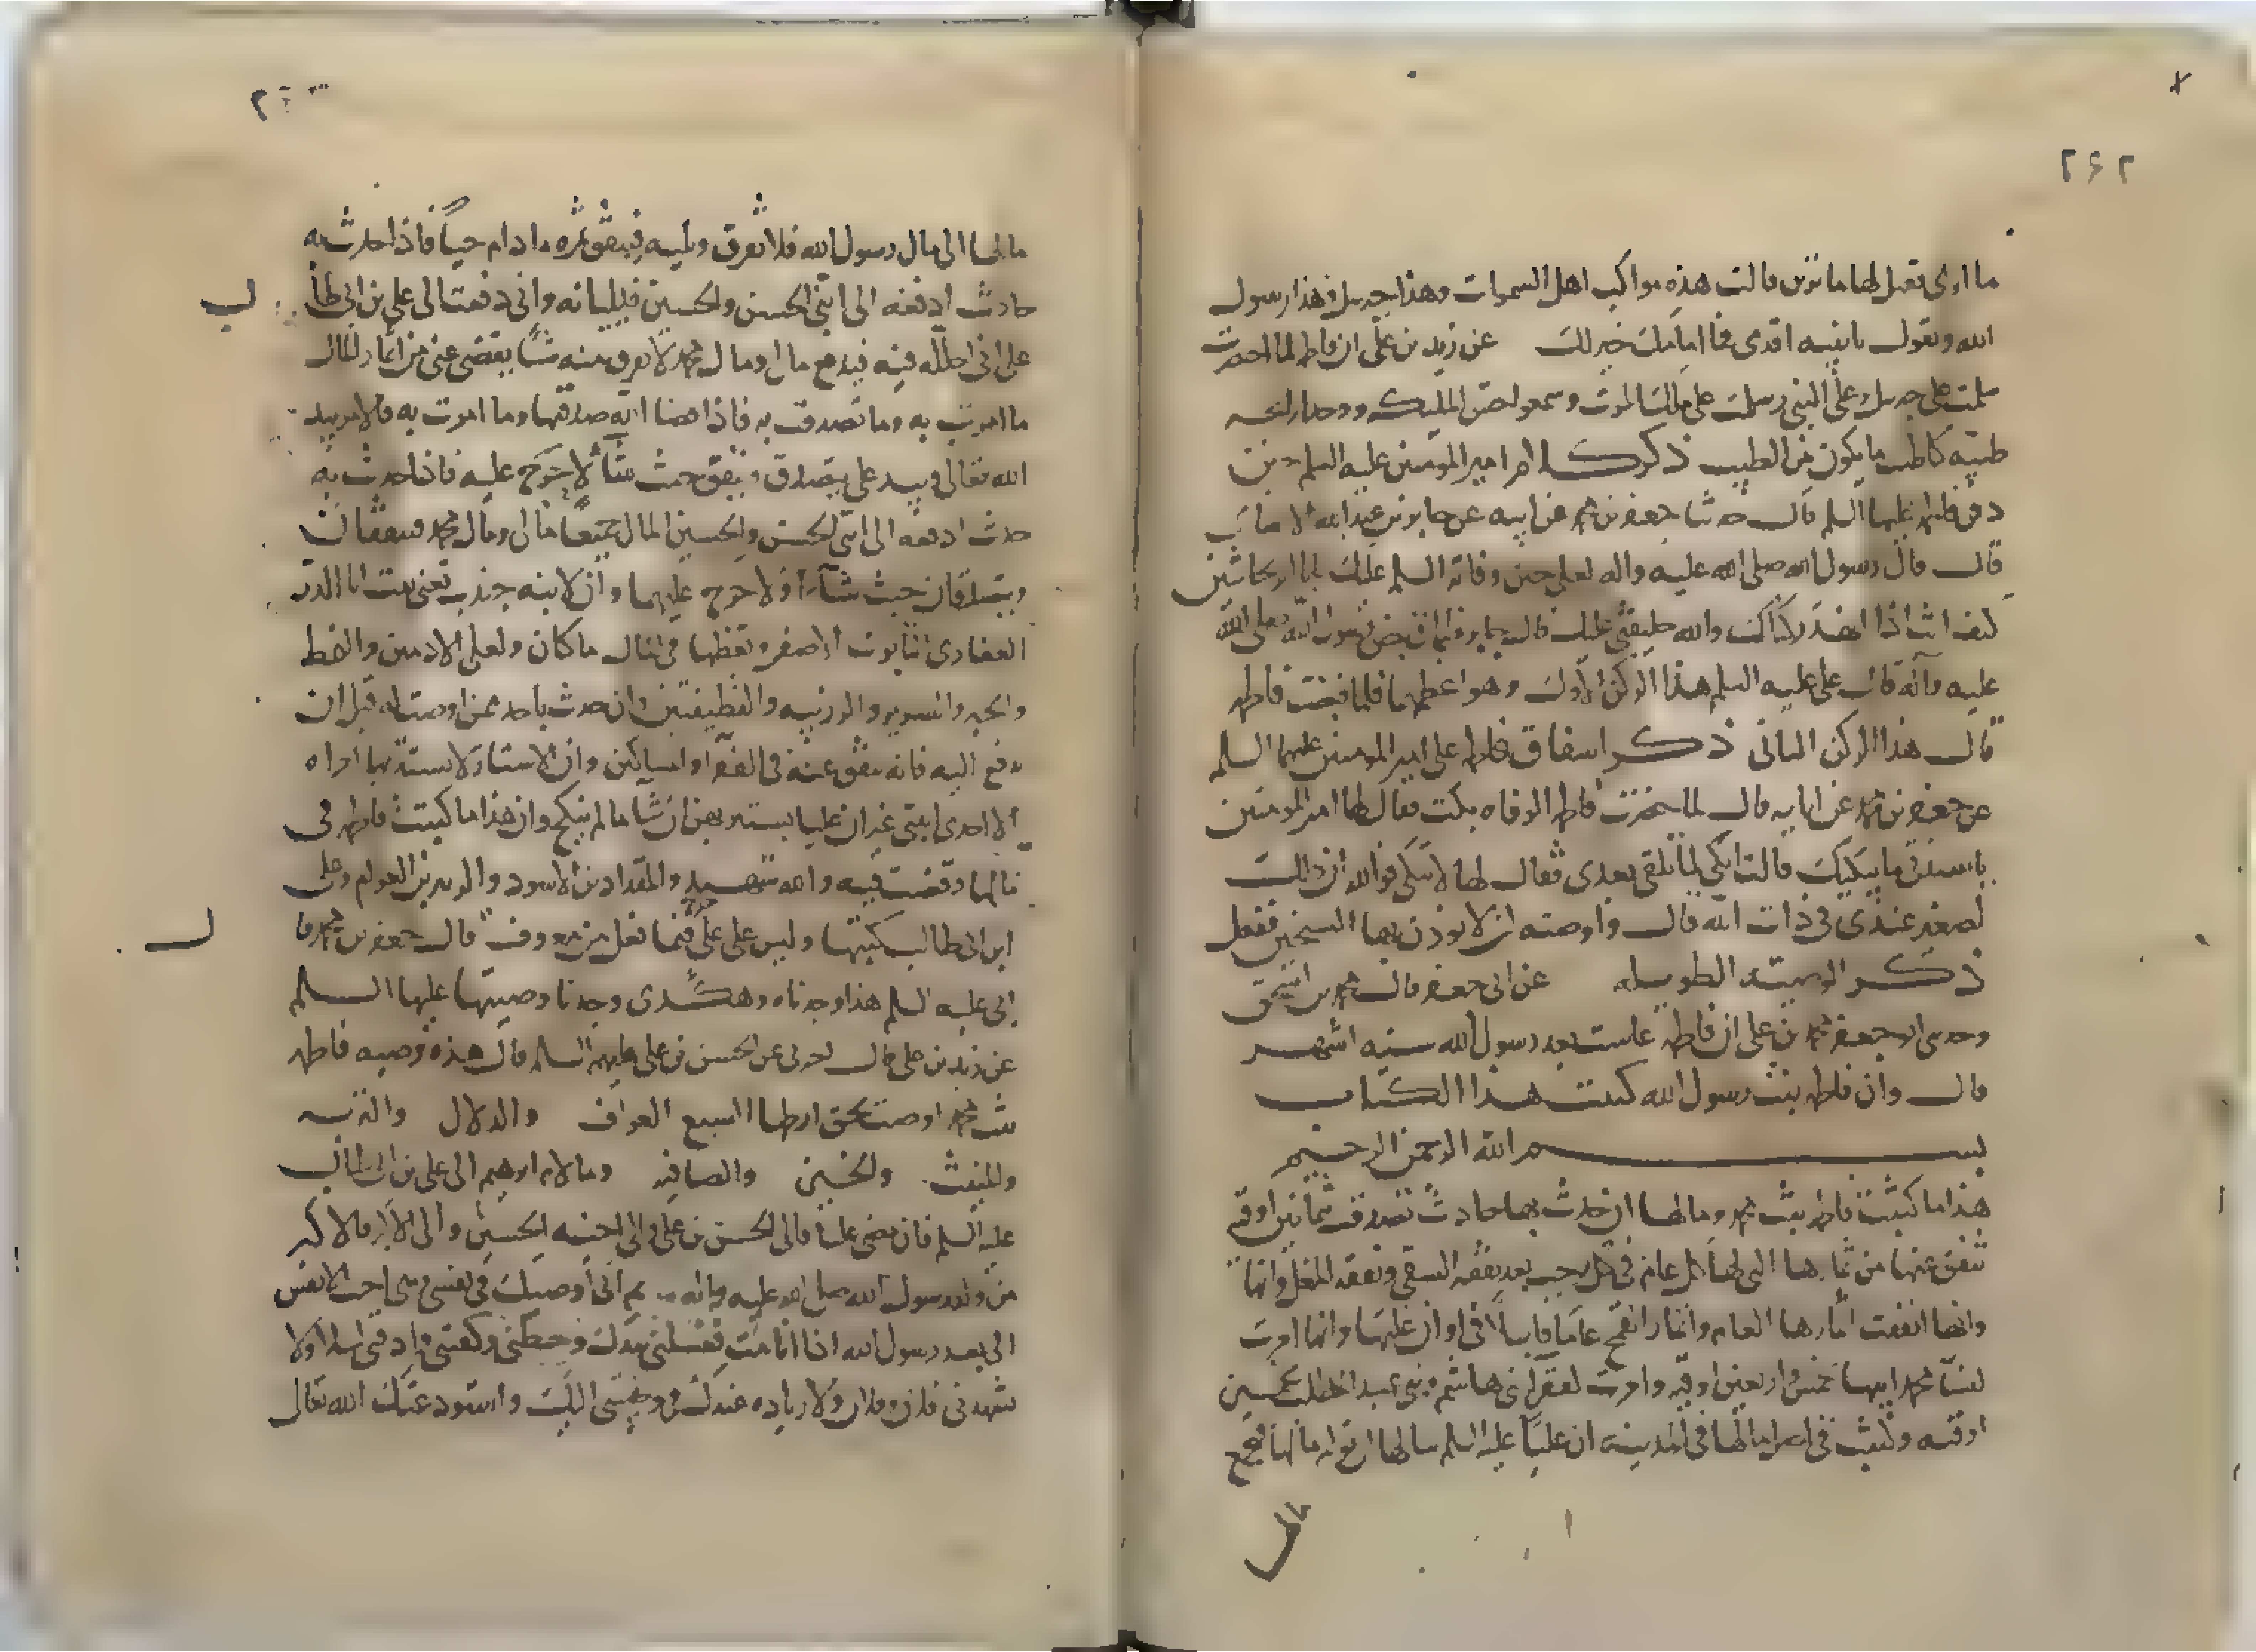 ٢٤٢
ما ارى فقيل لها ما ترين قالت هذه مواكب اهل السموات وهذا جبريل وهذا رسول
الله ويقول يا بنيه اقدمي فما امامك خير لك عن زيد بن علي ان فاطمه لما احضرت
سلمت على جبريل وعلى النبي وسلمت على ملك الموت وسمعوا حس المليكه ووجدوا رايحه
طيبه كاطيب ما يكون من الطيب ذكر كلام امير المومنين عليه السلم حين
دفن فاطمه عليها السلم قال حدثنا جعفر بن محمد عن ابيه عن جابر بن عبد الله الانصاري
قال قال رسول الله صلى الله عليه واله لعلي حين وفاته السلم عليك يا ابا الريحانتين
كيف انت اذا انهد ركناك والله خليفتي عليك قال جابر فلما قبض رسول الله صلى الله
عليه وآله قال علي عليه السلم هذا الركن الاول وهو اعظمهما فلما قبضت فاطمه
قال هذا الركن الثاني ذكر اشفاق فاطمه على امير المومنين عليهما السلم
عن جعفر بن محمد عن ابايه قال لما حضرت فاطمه الوفاه بكت فقال لها امير المومنين
يا سيدتي ما يبكيك قالت ابكي لما تلقى بعدي فقال لها لا تبكي فوالله ان ذلك
لصغير عندي في ذات الله قال واوصته ان لا يوذن بها الشيخين ففعل
ذكر الوصية الطويله عن ابي جعفر قال محمد بن اسحق
وحدثني ابو جعفر محمد بن علي ان فاطمه عاشت بعد رسول الله سته اشهر
قال وان فاطمه بنت رسول الله كتبت هذا الكتاب
بسم الله الرحمن الرحيم
هذا ما كتبت فاطمه بنت محمد ومالها ان حدث بها حادث تصدقت بثمانين اوقيه
تنفق عنها من ثمارها التي لها كل عام في كل رجب بعد نفقه السقي ونفقه المغل وانها
وانها انفقت اثمارها العام واثمار القمح عاما قابلا في اوان غلتها وانها امرت
لنسآ محمد ابيها خمس واربعين اوقيه وامرت لفقرآ بني هاشم وبني عبد المطلب بخمسين
اوقيه وكتبت في اصل مالها في المدينه ان عليا عليه السلم سالها ان توليه مالها فيجمع
مالها الى مال رسول الله فلا يفرق ويليه فينفق ثمره ما دام حيا فاذا حدث به
حادث ادفعه الى ابني الحسن والحسين فيليانه واني دفعت الى علي بن ابي طا
لب
على اني احلله فيه فيدفع مالي ومال محمد لا يفرق منه شيا يقضي عني من اثمار المال
ما امرت به وما تصدقت به فاذا قضى الله صدقتها وما امرت به فالامر بيد
الله تعالى وبيد علي يتصدق وينفق حيث شآ لا حرج عليه فاذا حدث به
حدث ادفعه الى ابني الحسن والحسين المال جميعا مالي ومال محمد فينفقان
ويتصدقان حيث شآءا ولا حرج عليهما وان لابنه جندب تعني بنت ابا الذر
الغفاري التابوت الاصغر وتعطيها في المال ما كان ولعلي الادمين والنمط
والجبه والسرير والزربيه والقطيفتين وان حدث باحد ممن اوصت له قبل ان
يدفع اليه فانه ينفق عنه في الفقرآ والمساكين وان الاستار لا يستتر بها امراه
الا احدى ابنتي غير ان عليا يستتر بهن ان شآ ما لم ينكح وان هذا ما كتبت فاطمه في
مالها وقضت فيه والله شهيد والمقداد بن الاسود والزبير بن العوام وعلي
ابن ابي طالب كتبتها وليس على علي فيما فعل من معروف قال جعفر بن محمد قا
ل
ابي عليه السلم هذا وجدناه وهكذى وجدنا وصيتها عليها السلم
عن زيد بن علي قال اخبرني عن الحسن بن علي عليهم السلم قال هذه وصيه فاطمه
بنت محمد اوصت بحوايطها السبع العواف والدلال والبرقه
والمبيت والحسنى والصافيه ومال ام ابرهيم الى علي بن ابي طالب
عليه السلم فان مضى علي فالى الحسن بن علي والى اخيه الحسين والى الاكبر فالاكبر
من ولد رسول الله صلى الله عليه واله ثم اني اوصيك في نفسي وهي احب الانفس
الي بعد رسول الله اذا انا مت فغسلني بيدك وحنطني وكفني وادفني ليلا ولا
يشهدني فلان وفلان ولا زياده عندك في وصيتي اليك واستودعتك الله تعالى